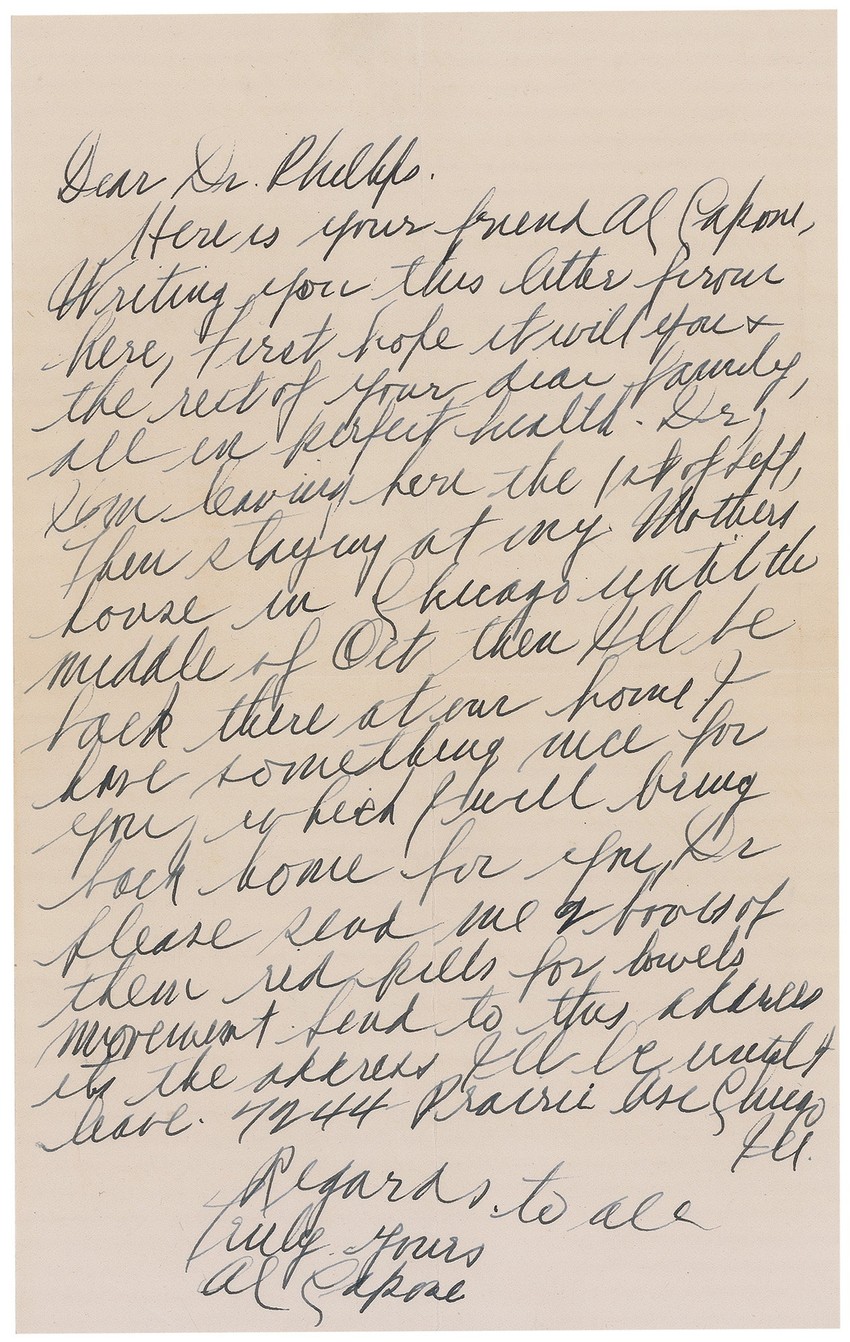 Dear Dr. Phillips.
Here is your friend Al Capone,
Writing you this letter from
here, First hope it will you &
the rest of your dear family,
all in perfect health. Dr,
I'm leaving here the 1st of Sept,
Then staying at my Mothers
house in Chicago until the
middle of Oct then I'll be
back there at our home &
have something nice for
you, which I will bring
back home for you, Dr
please send me 2 boxes of
them red pills for bowels
movement send to this address
its the address I'll be until I
leave. 7244 Prairie Ave Chicago
Ill.
Regards. to all
Truly yours
Al Capone